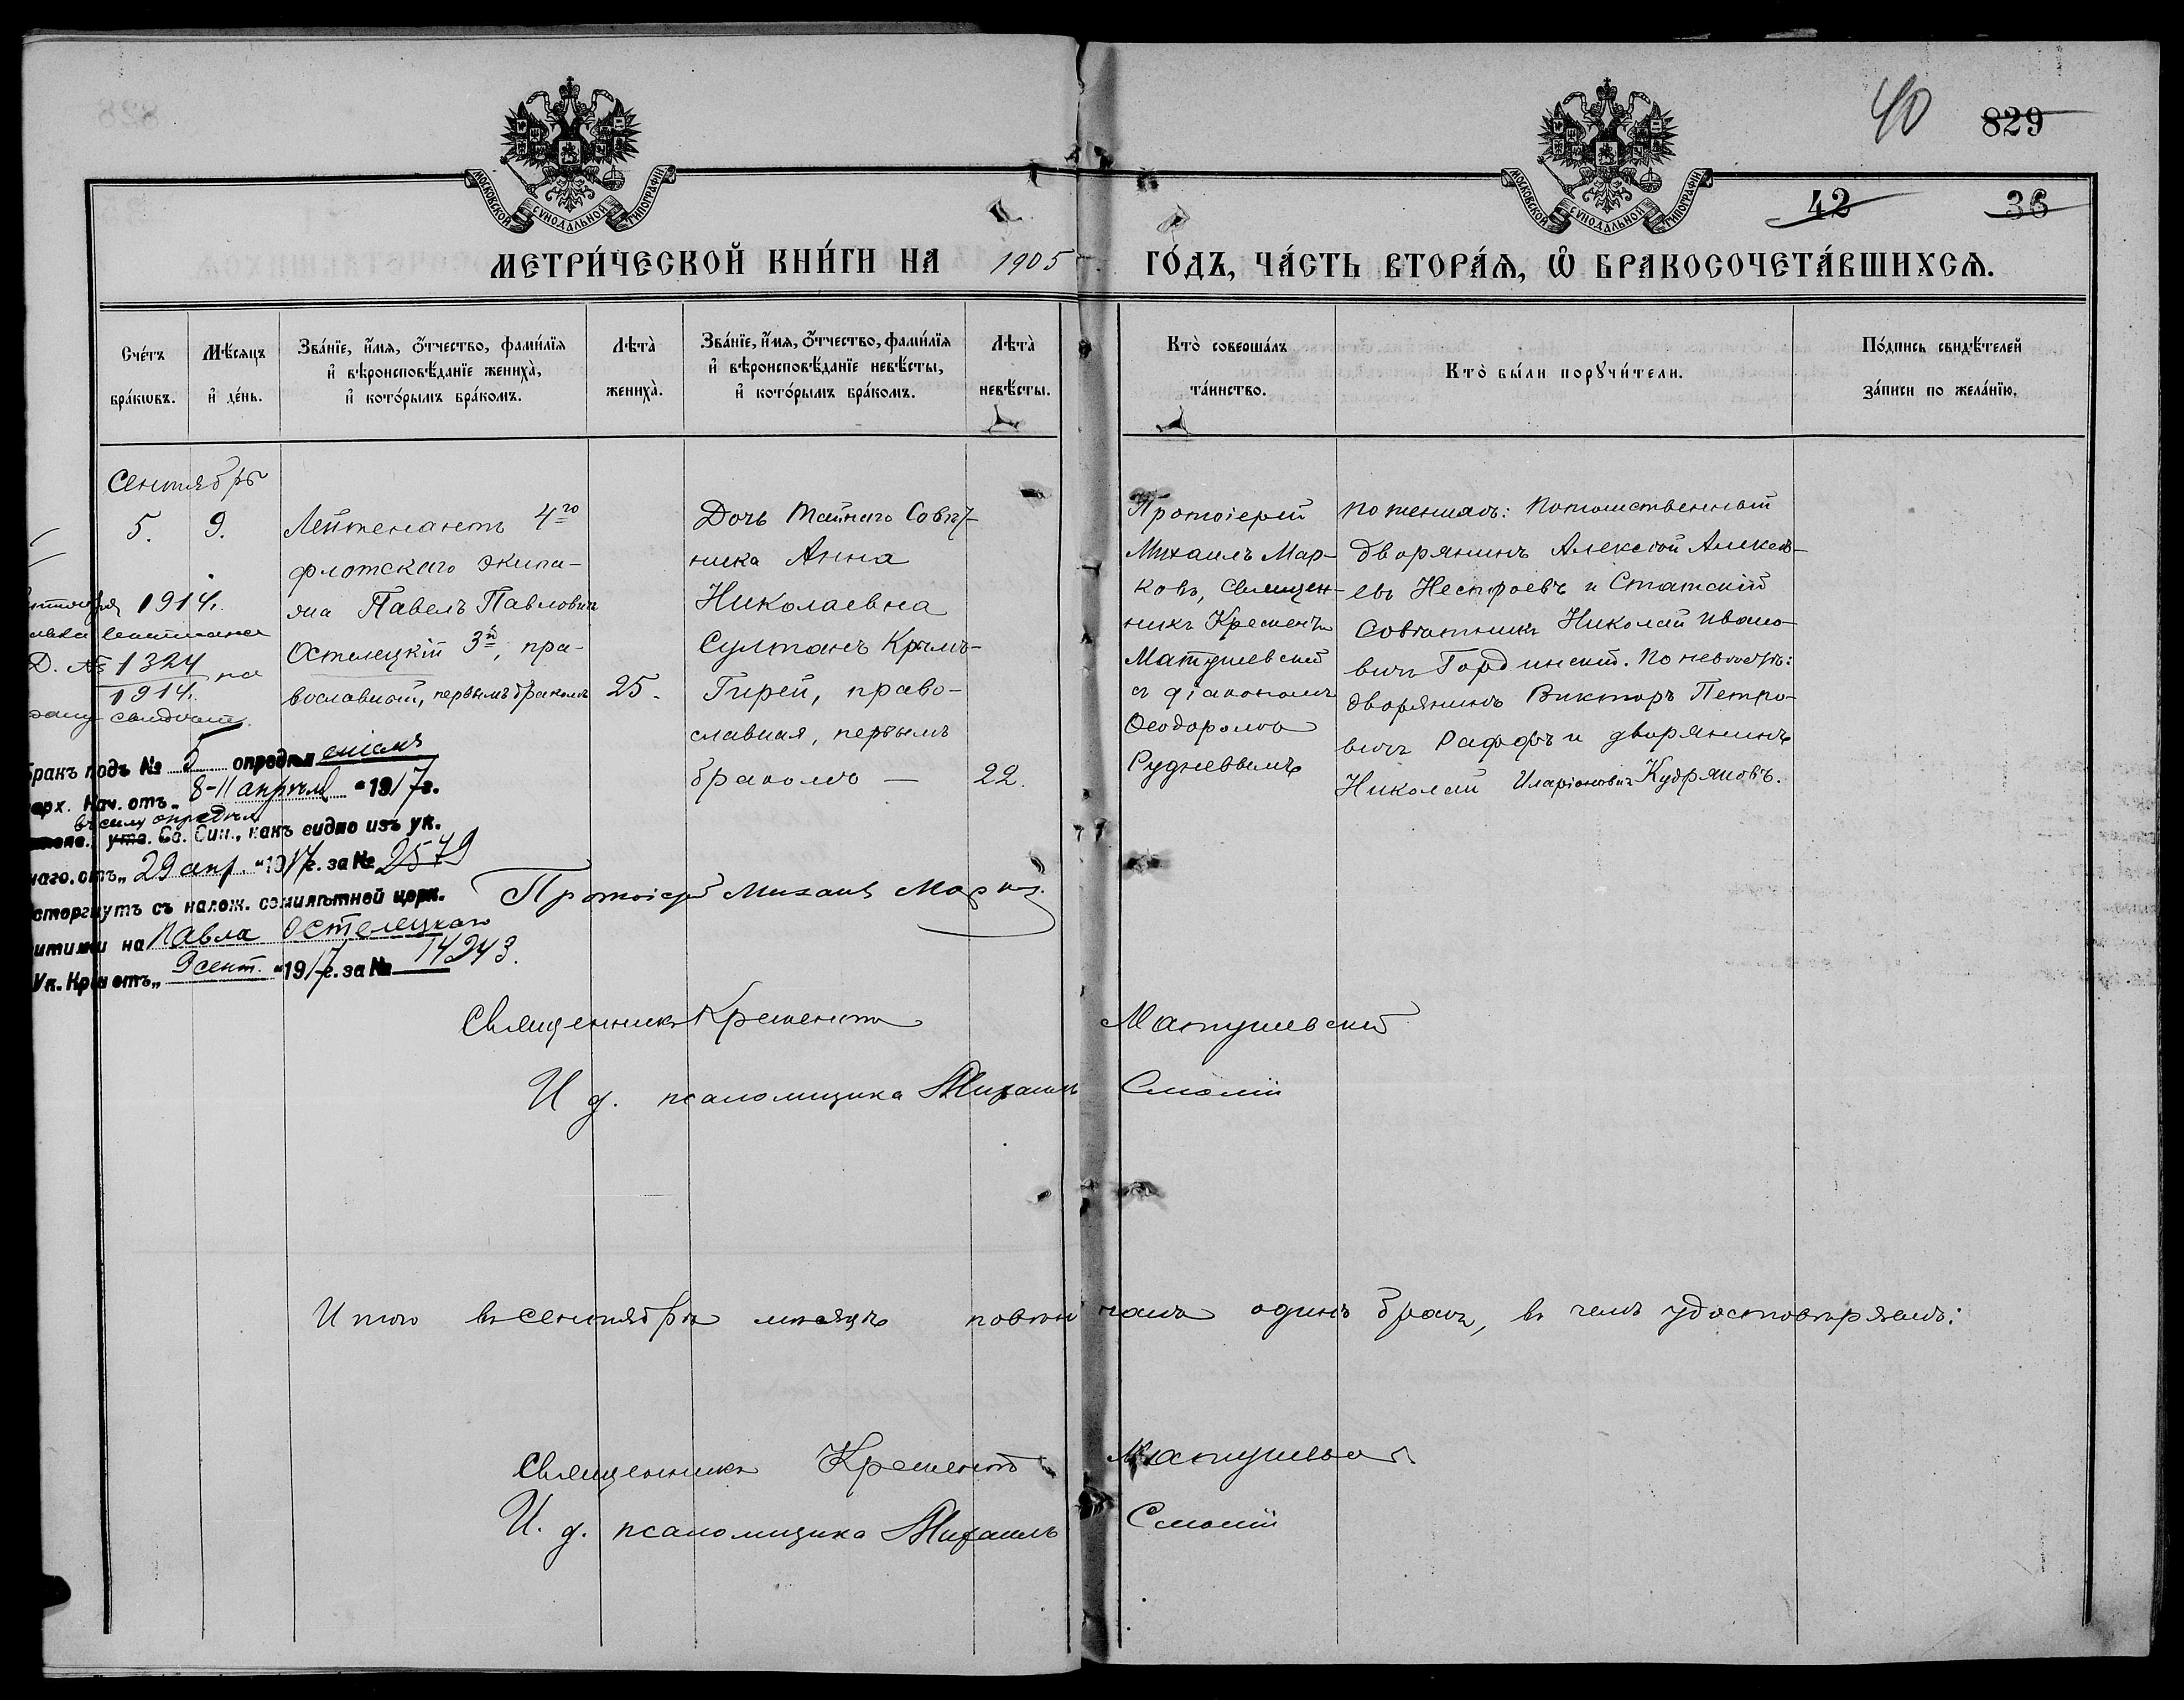 40 829
МОСКОВСКОЙ СѴНОДАЛЬНОЙ ТИПОГРАФІИ
МОСКОВСКОЙ СѴНОДАЛЬНОЙ ТИПОГРАФІИ
42 36
МЕТРИ́ЧЕСКОЙ КНИ́ГИ НА 1905 ГО́ДЪ, ЧА́СТЬ ВТОРА́Ѧ, Ѽ БРАКОСОЧЕТА́ВШИХСѦ.
Сче́тъ
бра́кѡвъ.
Мѣ́сяцъ
и҆ де́нь.
Зва́нїе, и҆́мѧ, ѻ҆́тчество, фами́лїѧ
и҆ вѣроисповѣ́данїе жениха̀,
и҆ кото́рымъ бра́комъ.
Лѣта̀
жениха̀.
Зва́нїе, и҆́мѧ, ѻ҆́тчество, фами́лїѧ
и҆ вѣроисповѣ́данїе невѣ́сты,
и҆ кото́рымъ бра́комъ.
Лѣта̀
невѣ́сты.
Кто̀ соверша́лъ
та́инство.
Кто̀ бы́ли порꙋчи́тели.
По́дпись свидѣ́телей
за́писи по жела́нїю.
Сентябрь
5. 9.
Лейтенантъ 4го
флотскаго экипа-
жа Павелъ Павловичъ
Остелецкій 3й, пра-
вославный, первымъ бракомъ
25.
Дочь Тайнаго Совѣт-
ника Анна
Николаевна
Султанъ Крымъ-
Гирей, право-
славная, первымъ
бракомъ —
22.
Протоіерей
Михаилъ Мар-
ковъ, Священ-
никъ Крементъ
Матушевскій
съ діакономъ
Ѳеодоромъ
Рудневымъ
По женихѣ: Потомственный
дворянинъ Алексѣй Алексѣ-
евъ Нестроевъ и Статскій
Совѣтникъ Николай Ивано-
вичъ Гординскій. По невѣстѣ:
дворянинъ Викторъ Петро-
вичъ Раффъ и дворянинъ
Николай Иларіоновичъ Кудряновъ.
1914.
Д. № 1324 на
1914.
бракъ подъ № 5 опредѣленіемъ
Епарх. Нач. отъ „8-11 апрѣля“ 1917 г.
въ силу опредѣл.
утв. Св. Син., какъ видно изъ ук.
наго. отъ „29 апр.“ 1917 г. за № 2579
расторгнутъ съ налож. семилѣтней церк.
епитиміи на Павла Остелецкаго
Ук. Кр. отъ „9 сент.“ 1917 г. за № 14243.
Протоіерей Михаилъ Марковъ
Священникъ Крементъ Матушевскій
И д. псаломщика Михаилъ Смолій
Итого въ сентябрѣ мѣсяцѣ повѣнчанъ одинъ бракъ, въ чемъ удостовѣряемъ:
Священникъ Крементъ Матушевскій
И. д. псаломщика Михаилъ Смолій